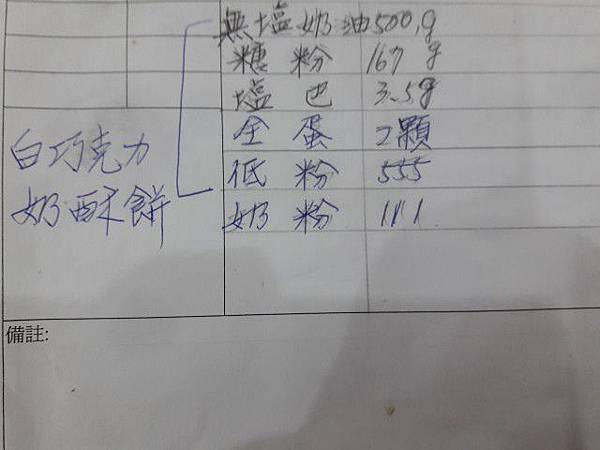 無塩奶油500.g
糖粉 167 g
塩巴 3.5g
全蛋 2顆
低粉 555
奶粉 111
白巧克力
奶酥餅
備註: